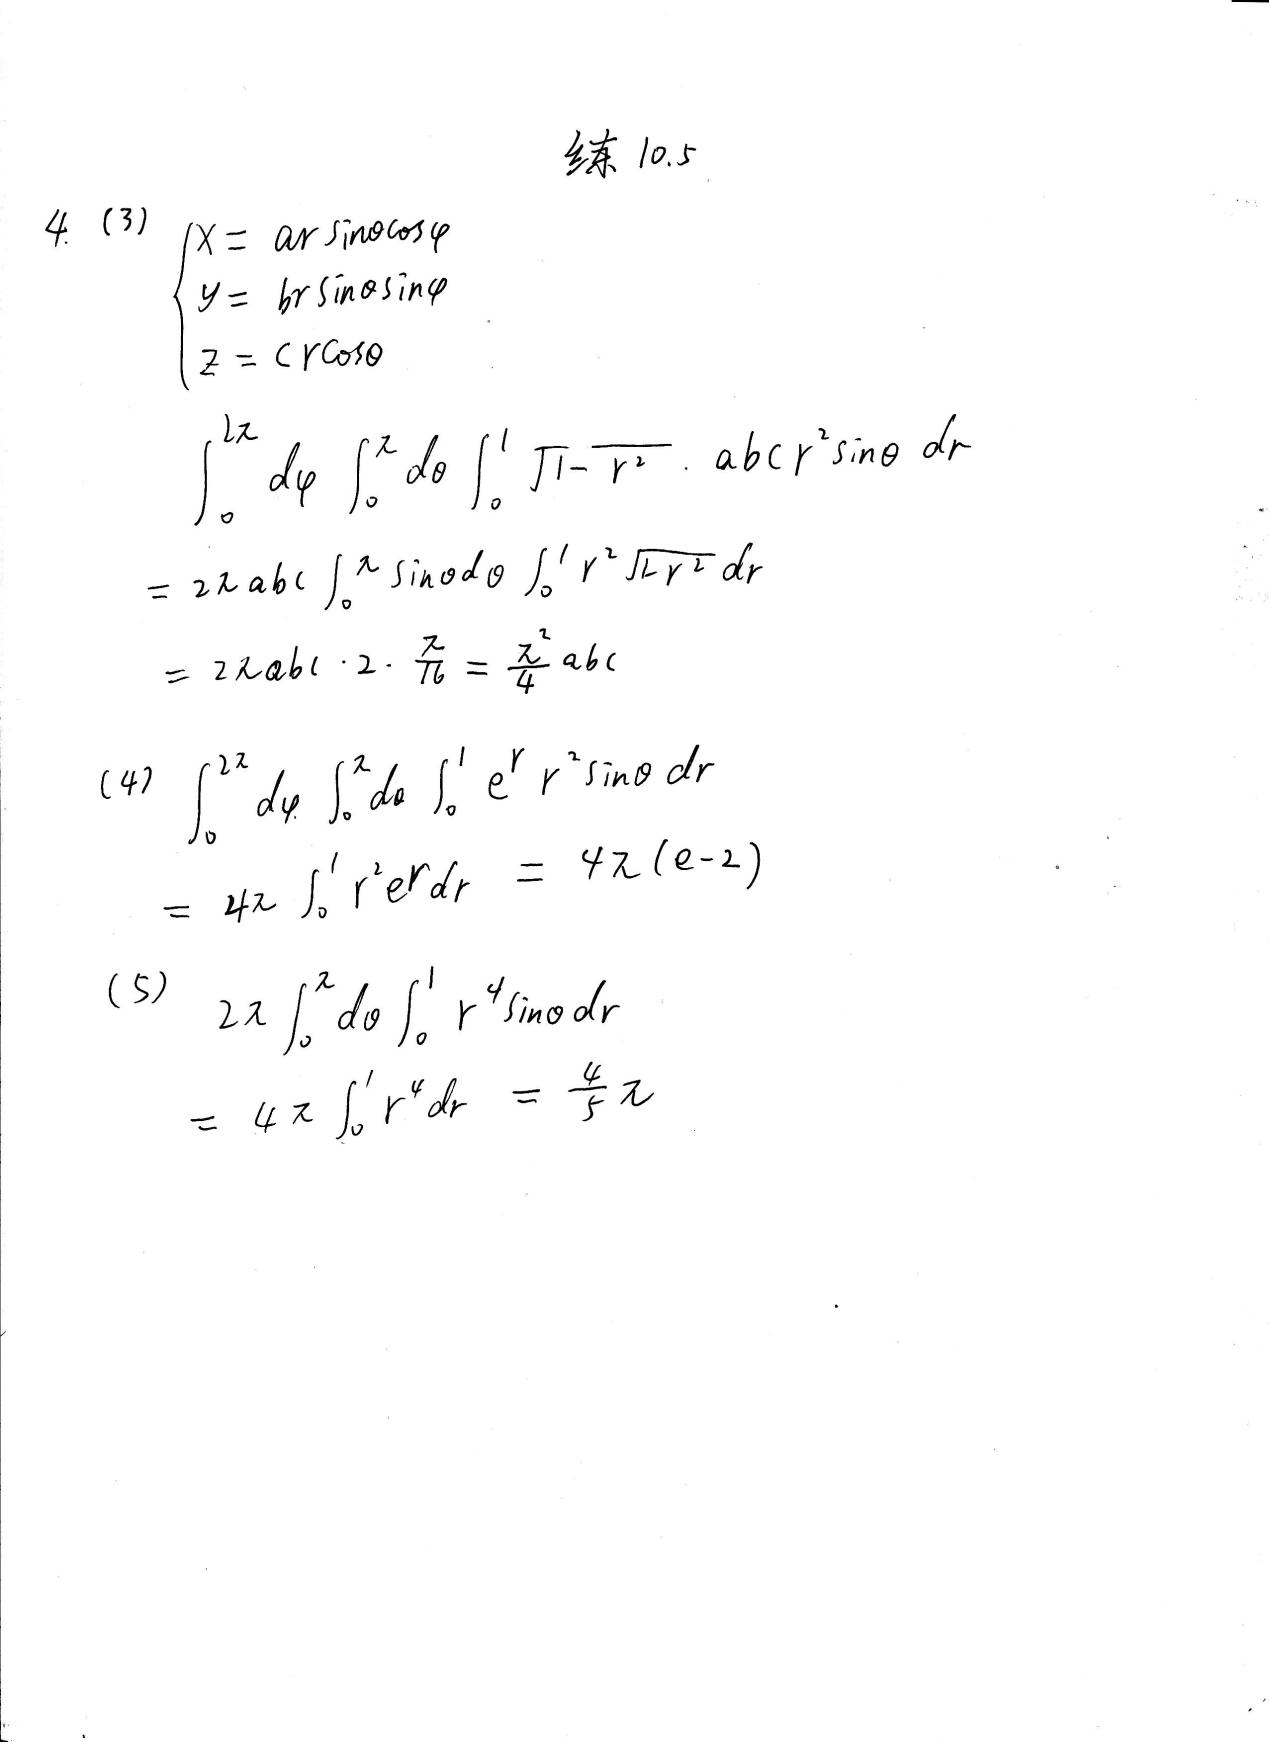 练 10.5
4. (3) { x = ar sinθcosφ
y = br sinθsinφ
z = cr cosθ
∫₀^{2π} dφ ∫₀^π dθ ∫₀^1 √(1-r²) · abcr²sinθ dr
= 2πabc ∫₀^π sinθdθ ∫₀^1 r²√(1-r²) dr
= 2πabc · 2 · π/16 = π²/4 abc
(4) ∫₀^{2π} dφ ∫₀^π dθ ∫₀^1 e^r r²sinθ dr
= 4π ∫₀^1 r²e^r dr = 4π(e-2)
(5) 2π ∫₀^π dθ ∫₀^1 r⁴sinθdr
= 4π ∫₀^1 r⁴dr = 4/5 π